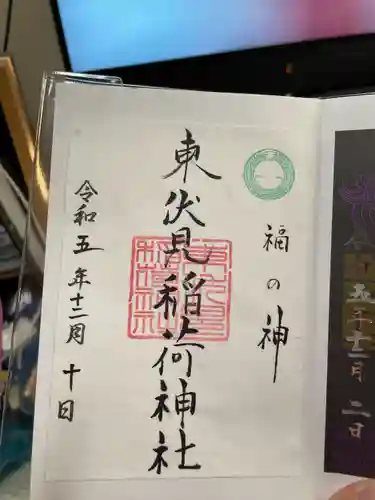 福の神
東伏見稲荷神社
令和五年十二月十日
五年十二月二日